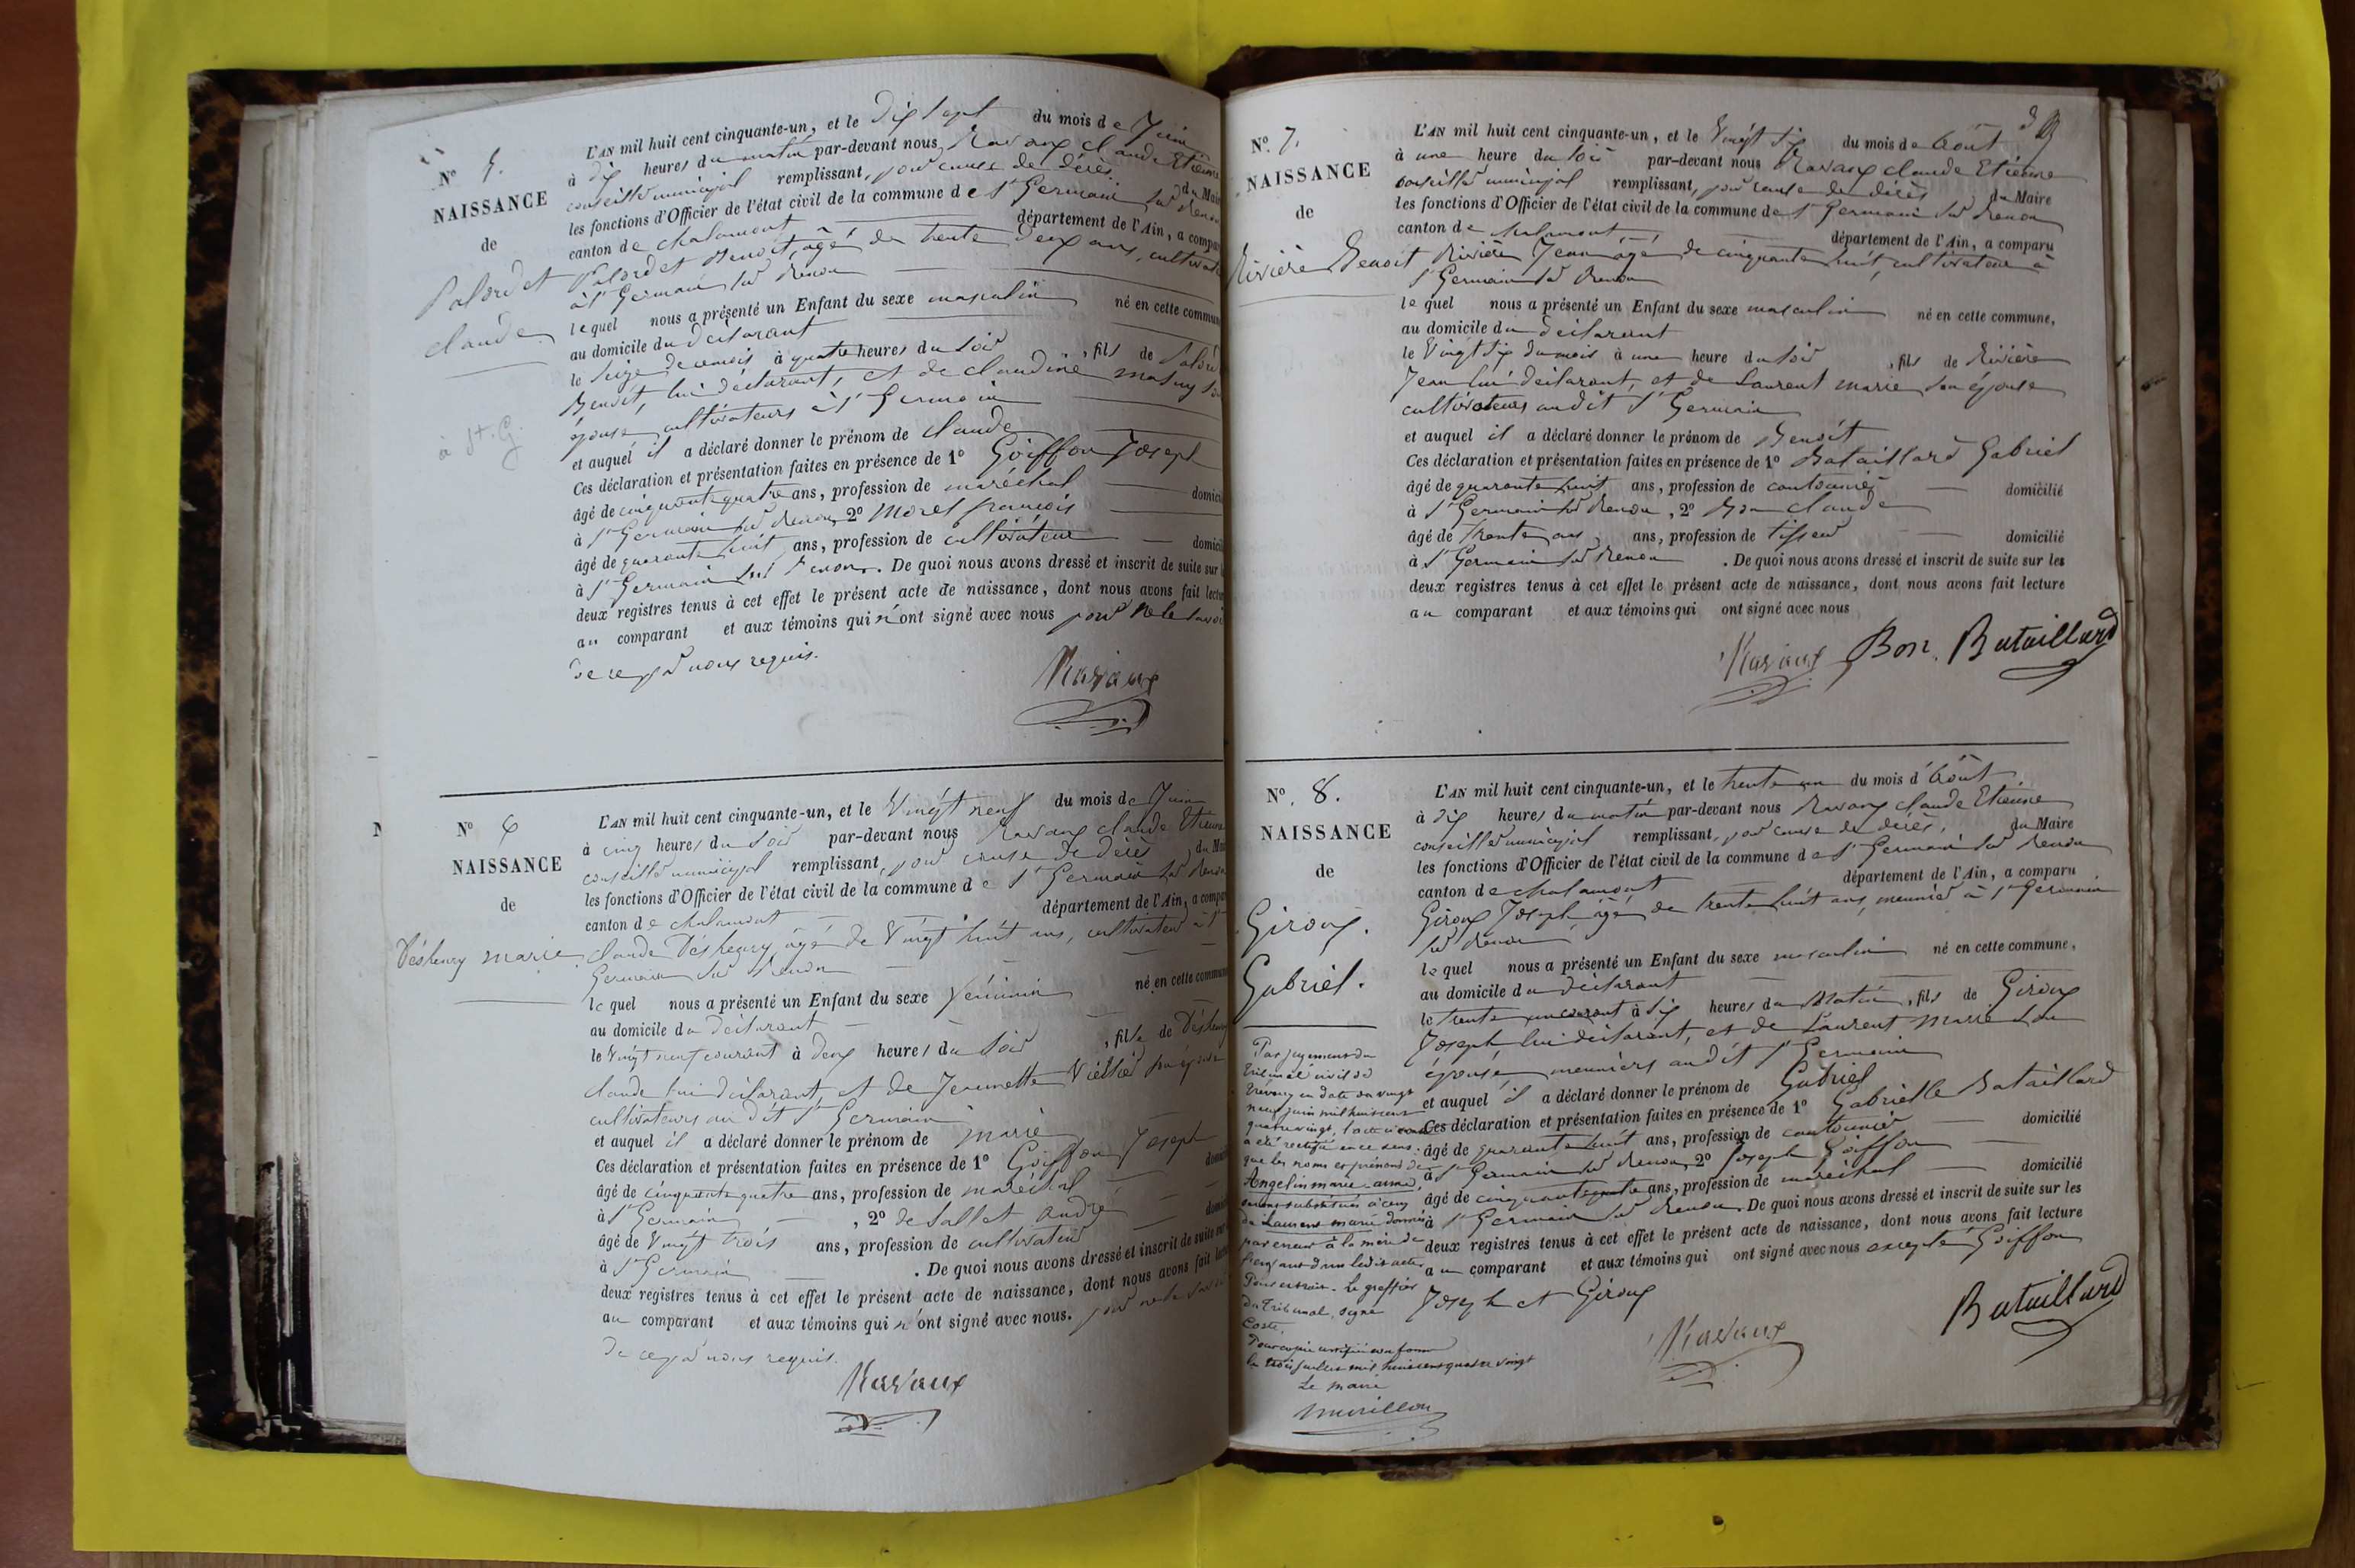 N° 5.
NAISSANCE
de
Palordet
Claude
à St. G.
L'AN mil huit cent cinquante-un, et le dix sept du mois de Juin
à dix heures du matin par-devant nous Ravaux Claude Etienne
conseiller municipal remplissant, pour cause de décès, du Maire
les fonctions d'Officier de l'état civil de la commune de St Germain sur Renon
canton de chalamont département de l'Ain, a compar
Palordet Benoit, âgé de trente deux ans, cultivat
à St Germain sur Renon
lequel nous a présenté un Enfant du sexe masculin né en cette commun
au domicile du déclarant
le seize de ce mois à quatre heures du soir, fils de Palord
Benoit, lui déclarant, et de claudine
épouse cultivateurs à St Germain
et auquel il a déclaré donner le prénom de claude
Ces déclaration et présentation faites en présence de 1° Goiffon Joseph
âgé de cinquante quatre ans, profession de maréchal domici
à St Germain sur Renon, 2° Morel françois
âgé de quarante huit ans, profession de cultivateur domici
à St Germain sur Renon. De quoi nous avons dressé et inscrit de suite sur l
deux registres tenus à cet effet le présent acte de naissance, dont nous avons fait lectu
au comparant et aux témoins qui n'ont signé avec nous pour ne le savoir
de ce par nous requis.
Ravaux
N° 6
NAISSANCE
de
Déshenry marie
L'AN mil huit cent cinquante-un, et le Vingt neuf du mois de Juin
à cinq heures du soir par-devant nous Ravaux claude Etienne
conseiller municipal remplissant, pour cause de décès, du Mai
les fonctions d'Officier de l'état civil de la commune de St Germain sur Renon
canton de chalamont département de l'Ain, a compar
claude Déshenry âgé de Vingt huit ans, cultivateur à St
Germain sur Renon
lequel nous a présenté un Enfant du sexe féminin né en cette commun
au domicile du déclarant
le Vingt neuf courant à deux heures du soir, fille de Déshenry
claude lui déclarant, et de Jeannette son épouse
cultivateurs au dit St Germain
et auquel il a déclaré donner le prénom de marie
Ces déclaration et présentation faites en présence de 1° Goiffon Joseph
âgé de cinquante quatre ans, profession de maréchal domici
à St Germain, 2° de Sallet André
âgé de Vingt trois ans, profession de cultivateur domici
à St Germain. De quoi nous avons dressé et inscrit de suite sur
deux registres tenus à cet effet le présent acte de naissance, dont nous avons fait lect
au comparant et aux témoins qui n'ont signé avec nous. pour ne le savoir
de ce par nous requis.
Ravaux
N° 7.
NAISSANCE
de
Rivière Benoit
L'AN mil huit cent cinquante-un, et le Vingt six du mois de Août
à une heure du soir par-devant nous Ravaux claude Etienne
conseiller municipal remplissant, pour cause de décès du Maire
les fonctions d'Officier de l'état civil de la commune de St Germain sur Renon
canton de chalamont département de l'Ain, a comparu
Rivière Jean âgé de cinquante huit, cultivateur à
St Germain sur Renon
lequel nous a présenté un Enfant du sexe masculin né en cette commune,
au domicile du déclarant
le Vingt six du mois à une heure du soir, fils de Rivière
Jean lui déclarant, et de Laurent marie son épouse
cultivateurs audit St Germain
et auquel il a déclaré donner le prénom de Benoit
Ces déclaration et présentation faites en présence de 1° Bataillard Gabriel
âgé de quarante huit ans, profession de cantonnier domicilié
à St Germain sur Renon, 2° Bon claude
âgé de trente ans, ans, profession de tisseur domicilié
à St Germain sur Renon. De quoi nous avons dressé et inscrit de suite sur les
deux registres tenus à cet effet le présent acte de naissance, dont nous avons fait lecture
au comparant et aux témoins qui ont signé avec nous
Ravaux Bon. Bataillard
N°. 8.
NAISSANCE
de
Giroux.
Gabriel.
L'AN mil huit cent cinquante-un, et le trente un du mois d'Août
à dix heures du matin par-devant nous Ravaux claude Etienne
conseiller municipal remplissant, pour cause de décès, du Maire
les fonctions d'Officier de l'état civil de la commune de St Germain sur Renon
canton de chalamont département de l'Ain, a comparu
Giroux Joseph âgé de trente huit ans, meunier à St Germain
sur Renon
lequel nous a présenté un Enfant du sexe masculin né en cette commune,
au domicile du déclarant
le trente un courant à six heures du matin, fils de Giroux
Joseph, lui déclarant, et de Laurent marie son
épouse, meuniers audit St Germain
et auquel il a déclaré donner le prénom de Gabriel
Ces déclaration et présentation faites en présence de 1° Gabrielle Bataillard
âgé de quarante huit ans, profession de cantonnier domicilié
à St Germain sur Renon, 2° Joseph Goiffon
âgé de cinquante quatre ans, profession de maréchal domicilié
à St Germain sur Renon. De quoi nous avons dressé et inscrit de suite sur les
deux registres tenus à cet effet le présent acte de naissance, dont nous avons fait lecture
au comparant et aux témoins qui ont signé avec nous excepté Goiffon
Joseph et Giroux
Ravaux
Bataillard
Par jugement du
tribunal civil de
Trévoux en date du vingt
neuf juin mil huit cent
quatre vingt, l'acte ci contre
a été rectifié en ce sens:
que les noms et prénoms de
Angelin marie anne,
seront substitués à ceux
de Laurent marie donnés
par erreur à la mère de
l'enfant dans ledit acte
Pour extrait. Le greffier
du Tribunal, signé
Coste.
Pour copie certifiée conforme
le trois juillet mil huit cent quatre vingt
Le maire
Murillon